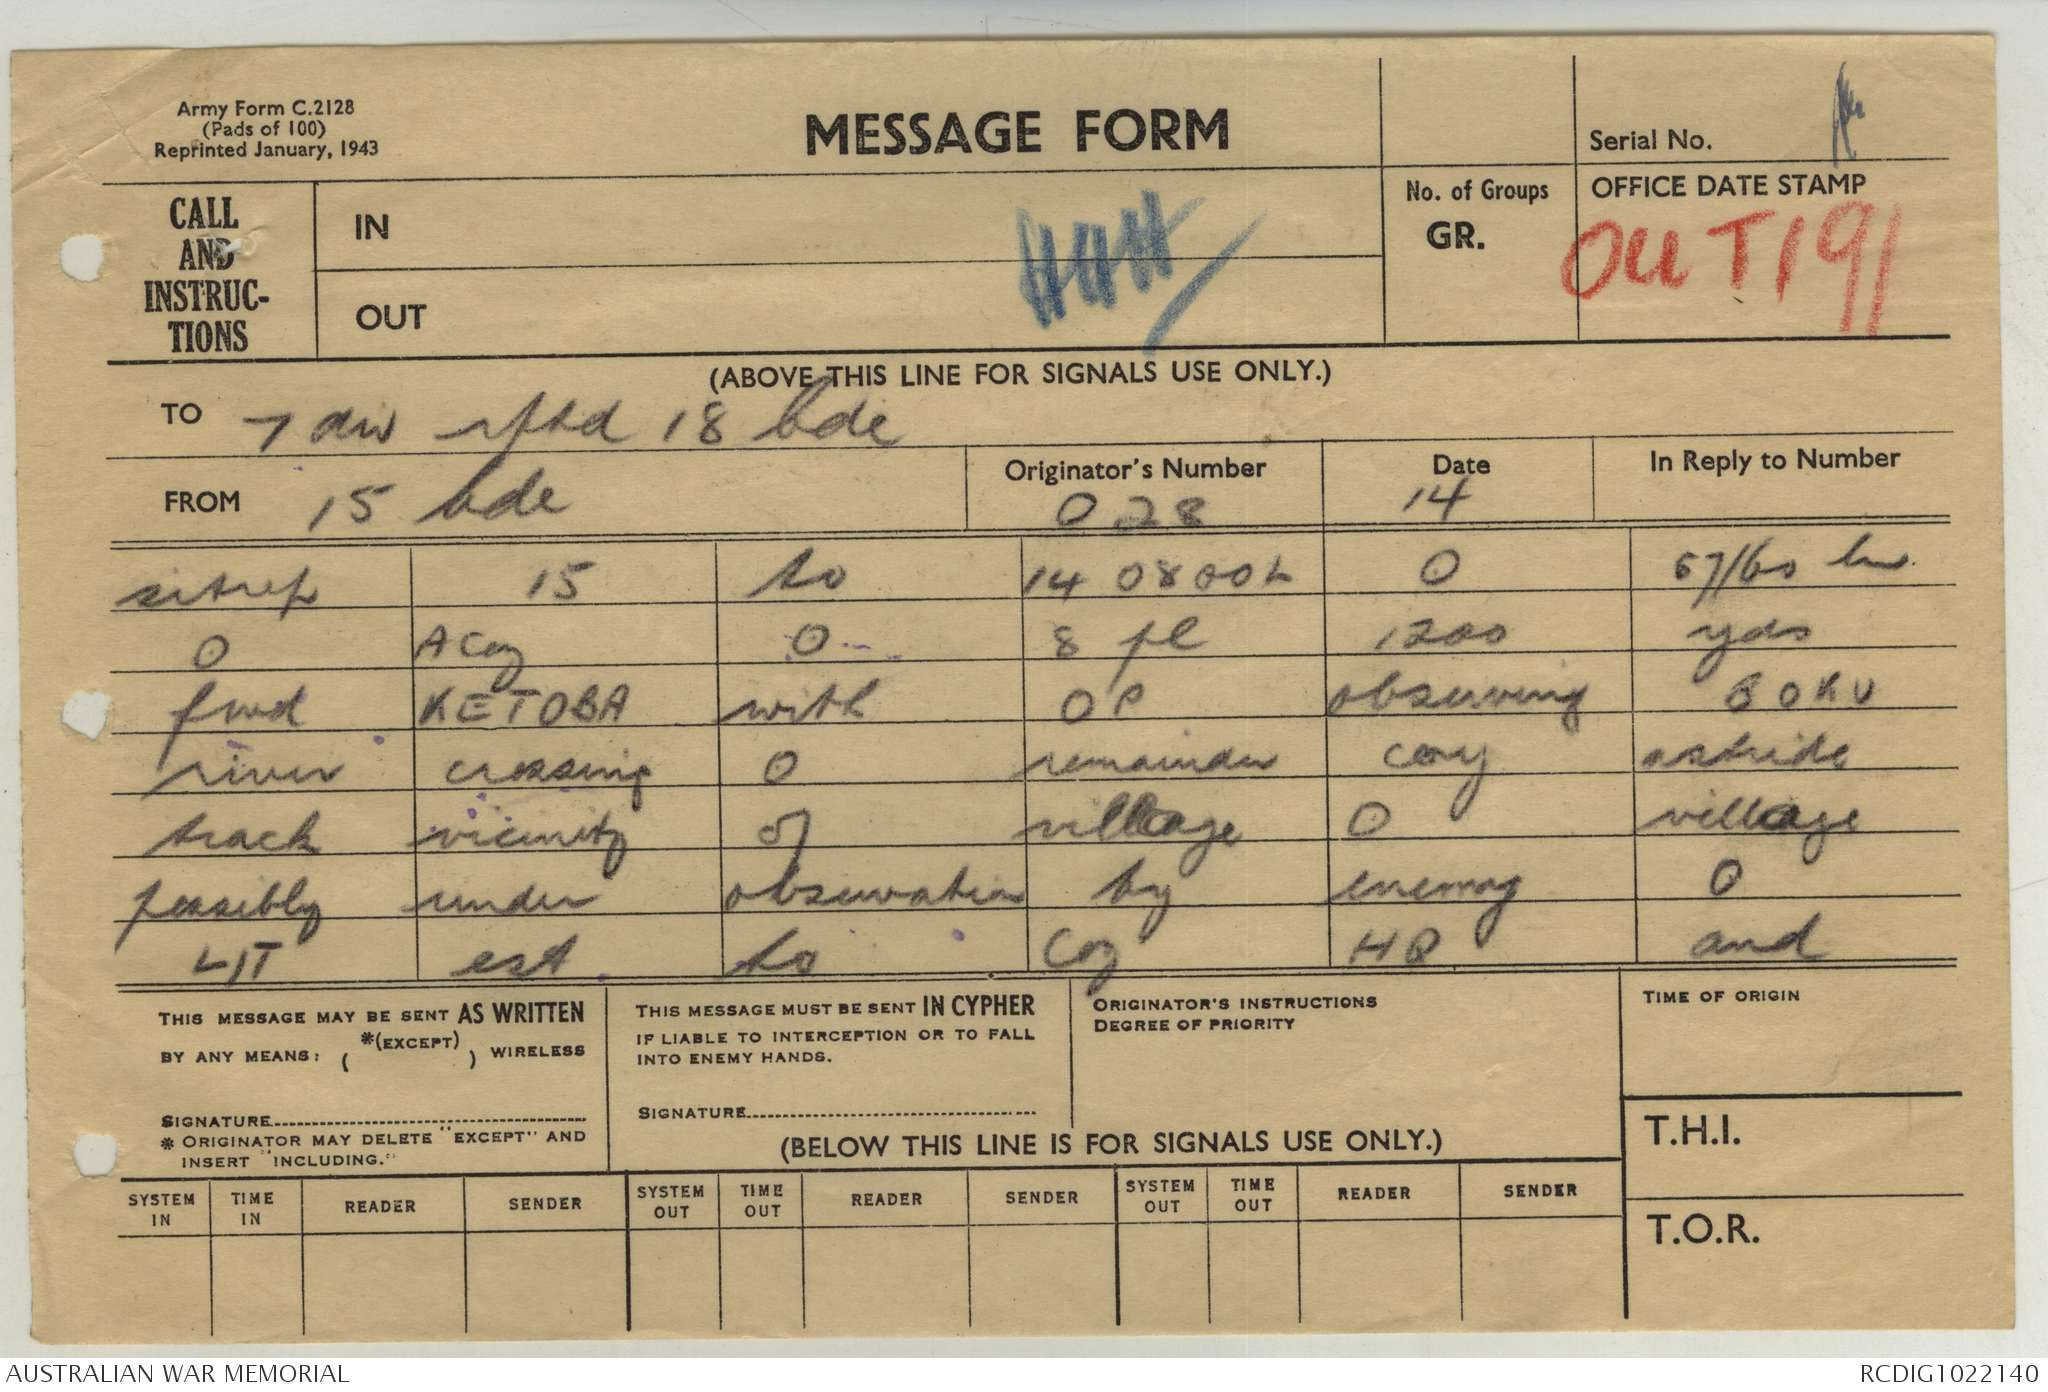 Army Form C.2128
(Pads of 100)
Reprinted January, 1943
MESSAGE FORM
Serial No.
CALL
AND
INSTRUC-
TIONS
IN
OUT
No. of Groups
GR.
OFFICE DATE STAMP
OUT 191
(ABOVE THIS LINE FOR SIGNALS USE ONLY.)
TO 7 div rptd 18 bde
FROM 15 bde
Originator's Number
028
Date
14
In Reply to Number
sitrep 15 to 14 0800L O 57/60 bn
O A Coy O 8 pl 1200 yds
fwd KETOBA with OP observing BOKU
river crossing O remainder coy astride
track vicinity of village O village
possibly under observation by enemy O
L/T est to Coy HQ and
THIS MESSAGE MAY BE SENT AS WRITTEN
BY ANY MEANS: ( *(EXCEPT) ) WIRELESS
SIGNATURE
* ORIGINATOR MAY DELETE "EXCEPT" AND
INSERT "INCLUDING."
THIS MESSAGE MUST BE SENT IN CYPHER
IF LIABLE TO INTERCEPTION OR TO FALL
INTO ENEMY HANDS.
SIGNATURE
ORIGINATOR'S INSTRUCTIONS
DEGREE OF PRIORITY
TIME OF ORIGIN
T.H.I.
T.O.R.
(BELOW THIS LINE IS FOR SIGNALS USE ONLY.)
SYSTEM IN TIME IN READER SENDER SYSTEM OUT TIME OUT READER SENDER SYSTEM OUT TIME OUT READER SENDER
AUSTRALIAN WAR MEMORIAL RCDIG1022140